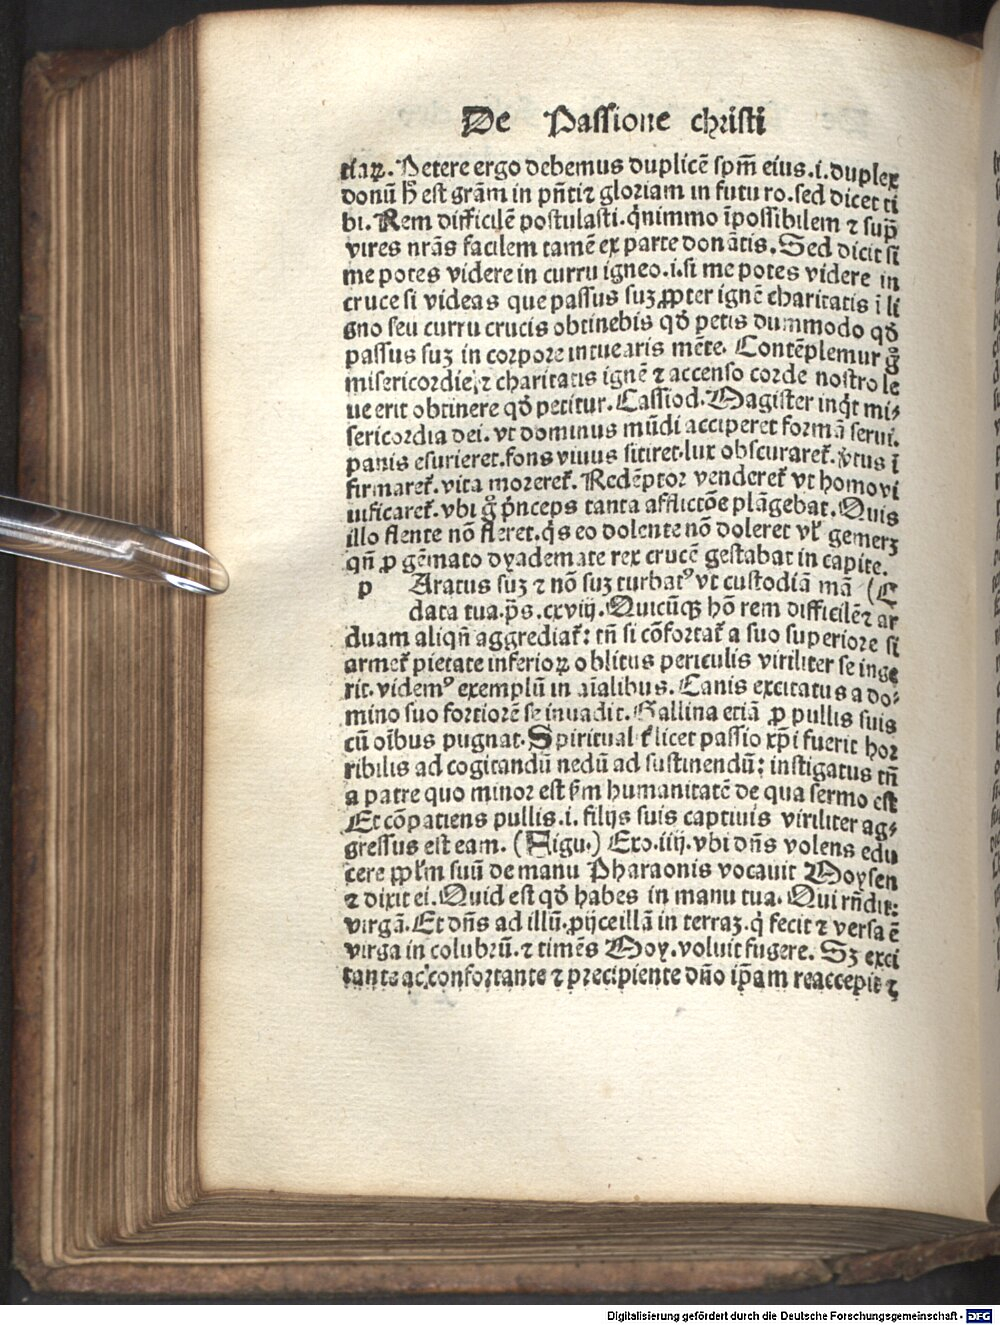 De Passione christi
tiaꝝ. Petere ergo debemus duplicē spm̄ eius .i. duplex
donū h̄ est grām in pn̄ti ⁊ gloriam in futu ro. sed dicet ti
bi. Rem difficilē postulasti. qͥnimmo īpossibilem ⁊ supͣ
vires nrās facilem tamē ex parte donātis. Sed dicit si
me potes videre in curru igneo .i. si me potes videre in
cruce si videas que passus suꝫ ꝓpter ignē charitatis ī li
gno seu curru crucis obtinebis qd̄ petis dummodo qd̄
passus suꝫ in corpore intuearis mēte. Contēplemur gͦ
misericordie, ⁊ charitatis ignē ⁊ accenso corde nostro le
ue erit obtinere qd̄ petitur. Cassiod. Magister inqͥt mi⸗
sericordia dei. vt dominus mūdi acciperet formā serui.
panis esurieret. fons viuus sitiret. lux obscurareť. v̓tus ī
firmareť. vita moreret̓. Redēptor vendereť vt homo vi
uificareť. vbi gͦ pͥnceps tanta afflictōe plāgebat. Quis
illo flente nō fleret. qͥs eo dolente nō doleret vľ gemerꝫ
qn̄ ꝓ gēmato dyademate rex crucē gestabat in capite.
p Aratus suꝫ ⁊ nō suꝫ turbatꝰ vt custodiā mā (C
data tua. ps̄. cxviij. Quicūqꝫ hō rem difficilē ⁊ ar
duam aliqn̄ aggrediať: tn̄ si cōfortať a suo superiore si
armeť pietate inferioꝝ oblitus periculis viriliter se inge
rit. videmꝰ exemplū in aīalibus. Canis excitatus a do⸗
mino suo fortiorē se inuadit. Gallina etiā ꝓ pullis suis
cū oībus pugnat. Spiritual̓r licet passio xp̄i fuerit hor
ribilis ad cogitandū nedū ad sustinendū: instigatus tn̄
a patre quo minor est ẜm humanitatē de qua sermo est
Et cōpatiens pullis .i. filijs suis captiuis viriliter ag⸗
gressus est eam. (Figu.) Exo. iiij. vbi dn̄s volens edu
cere ꝓpľm suū de manu Pharaonis vocauit Moysen
⁊ dixit ei. Quid est qd̄ habes in manu tua. Qui rn̄dit:
virgā. Et dn̄s ad illū. ꝓijce illā in terraꝫ. qͥ fecit ⁊ versa ē
virga in colubrū. ⁊ timēs Moy. voluit fugere. Sꝫ exci
tante ac confortante ⁊ precipiente dn̄o ip̄am reaccepit ⁊
Digitalisierung gefördert durch die Deutsche Forschungsgemeinschaft - DFG